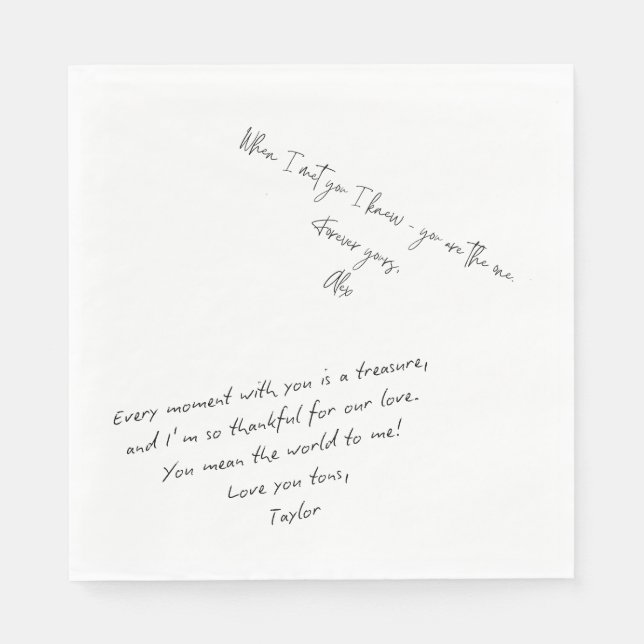 When I met you I knew - you are the one.
Forever yours,
Alex
Every moment with you is a treasure,
and I'm so thankful for our love.
You mean the world to me!
Love you tons,
Taylor